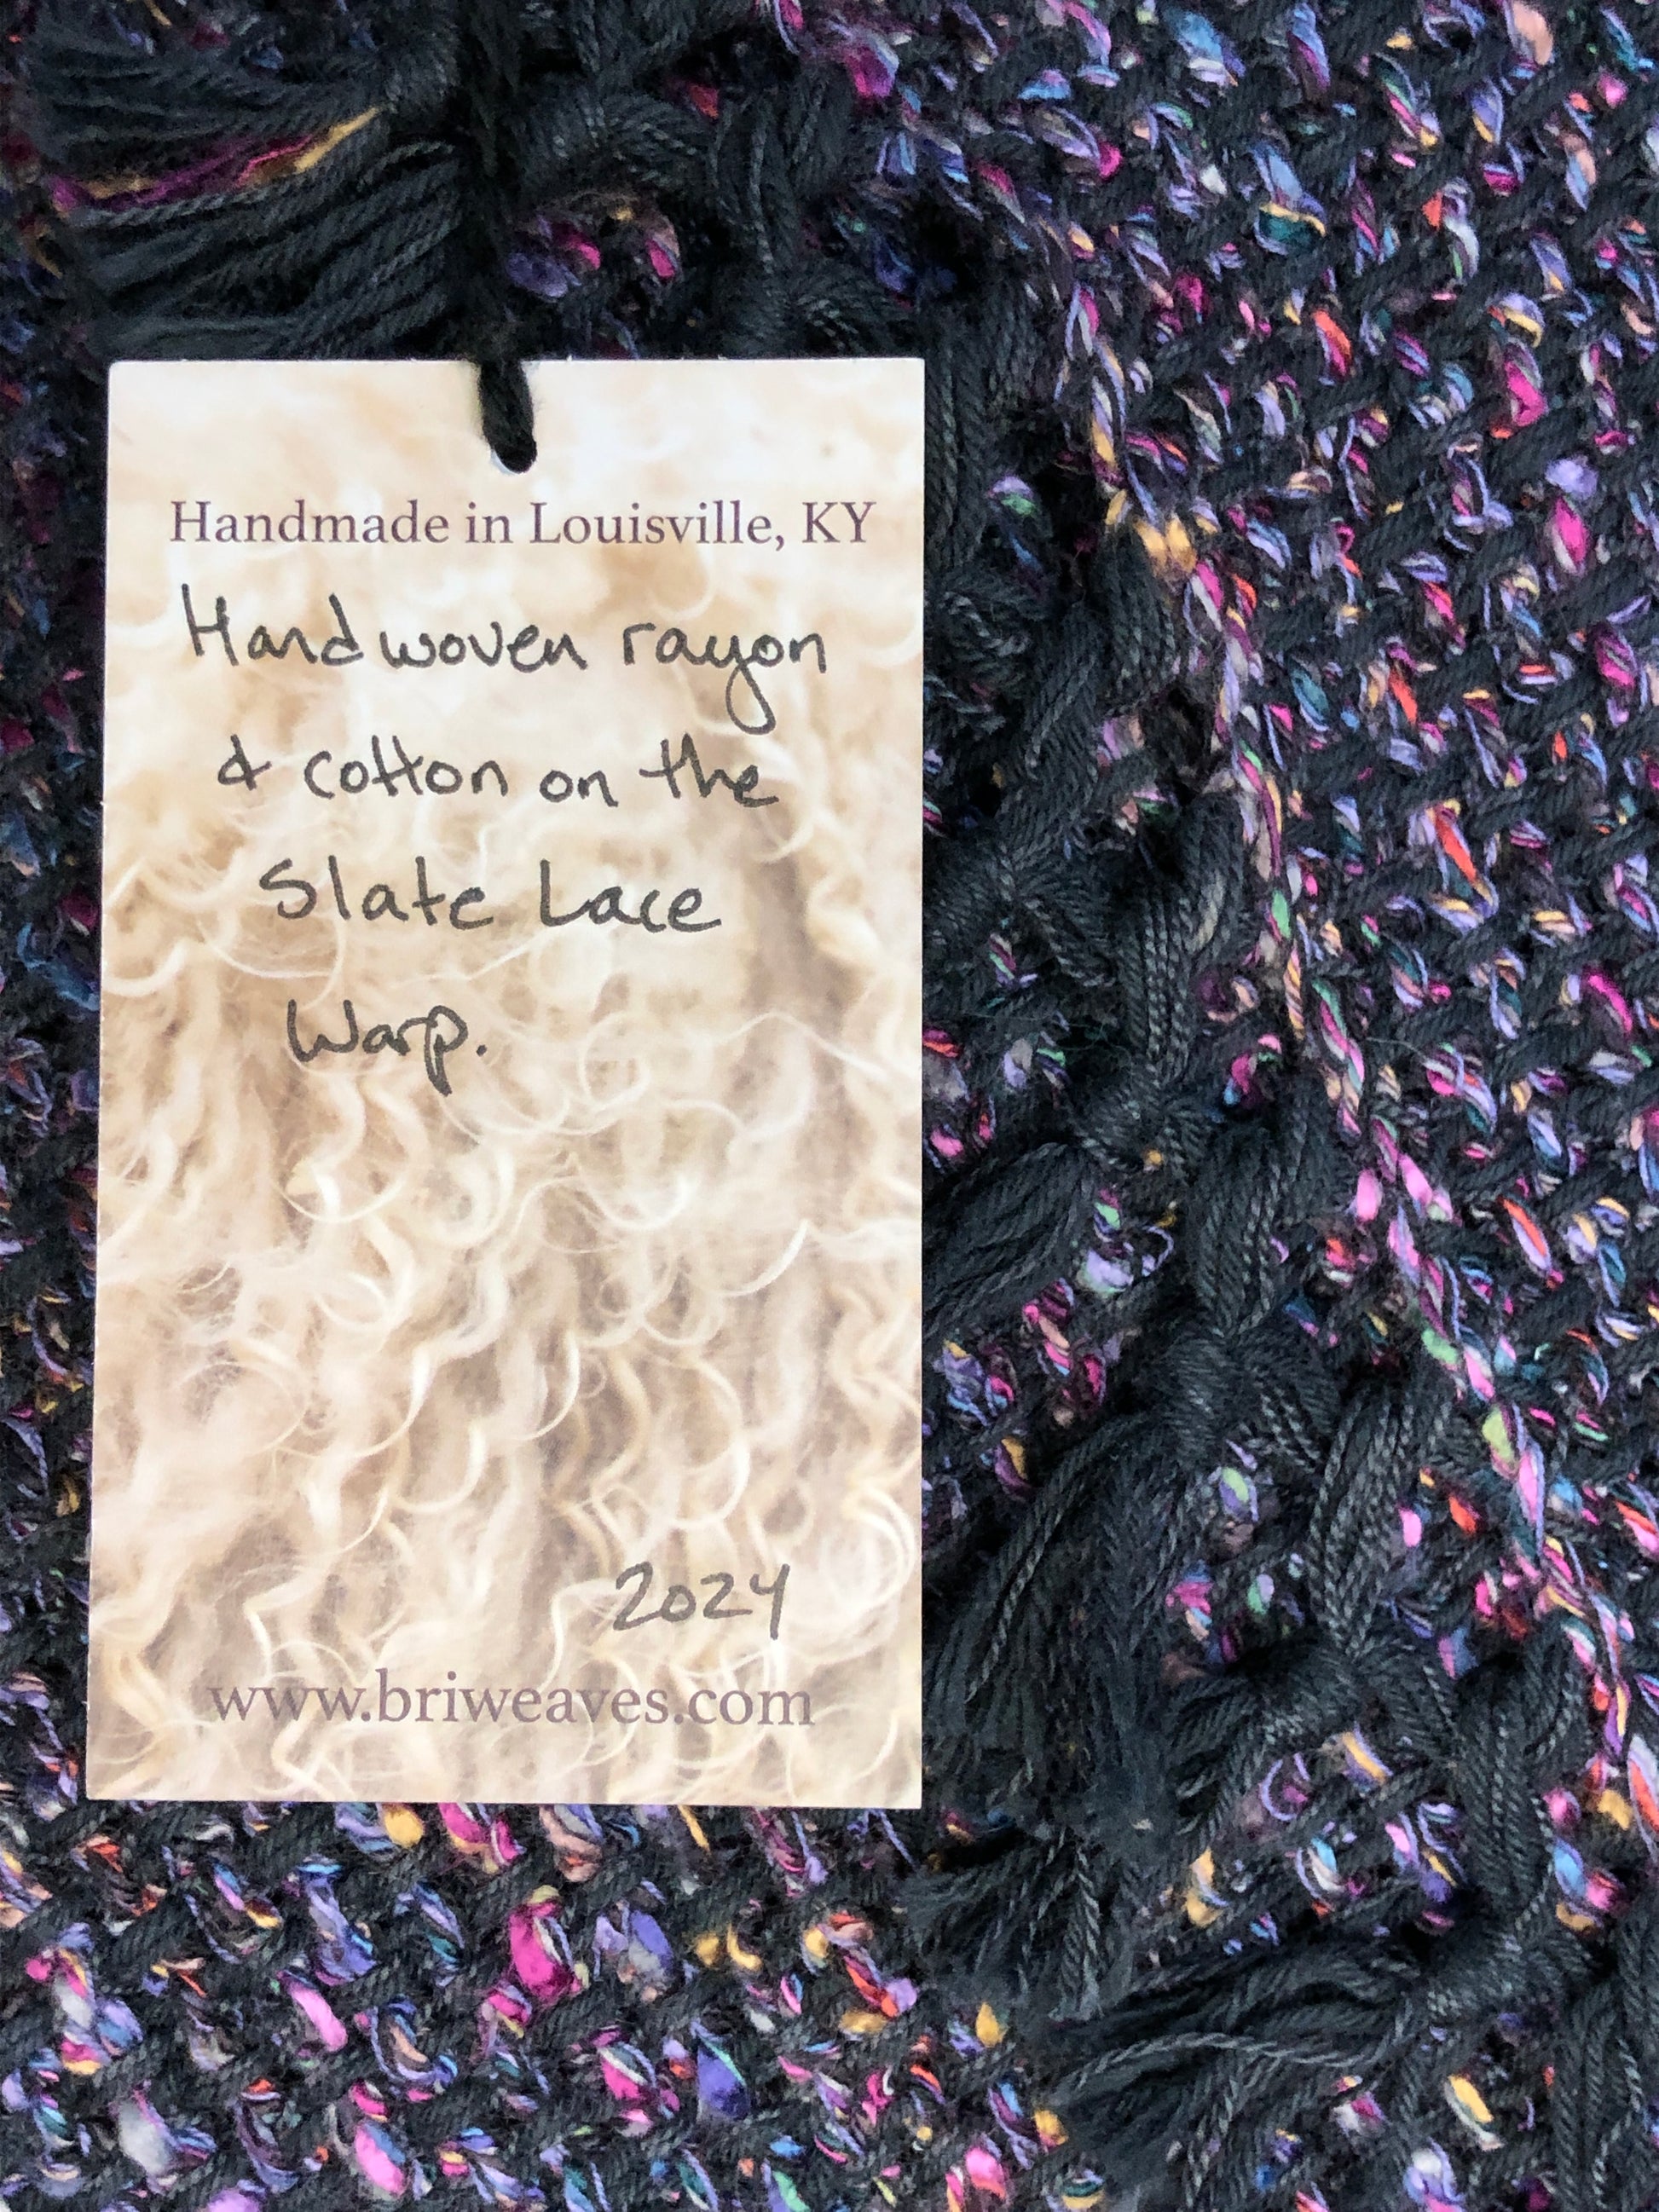 Handmade in Louisville, KY
Handwoven rayon
& cotton on the
Slate Lace
Warp.
2024
www.briweaves.com